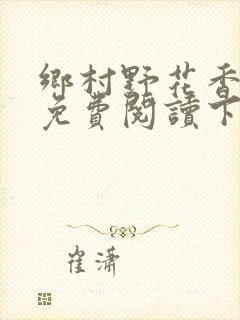 鄉村野花香
免費閱讀下
崔瀟